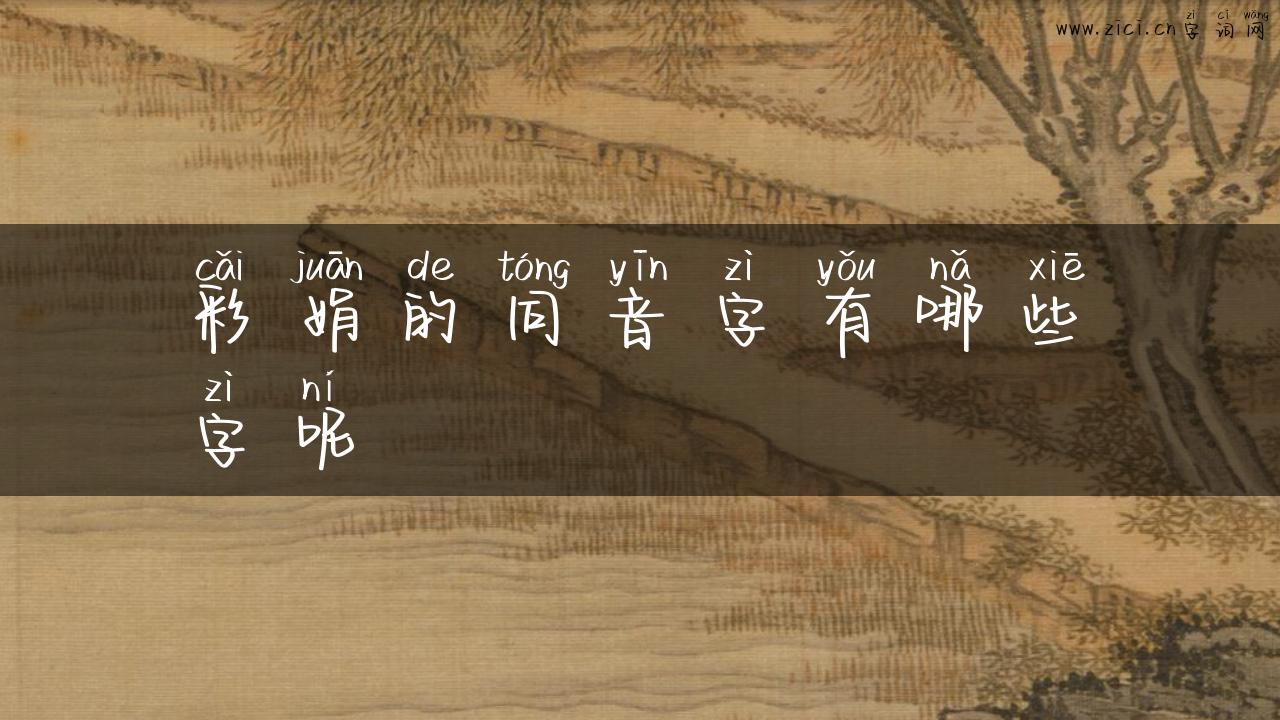 zì cí wǎng
www.zici.cn字词网
cǎi juān de tóng yīn zì yǒu nǎ xiē
彩娟的同音字有哪些
zì ní
字呢